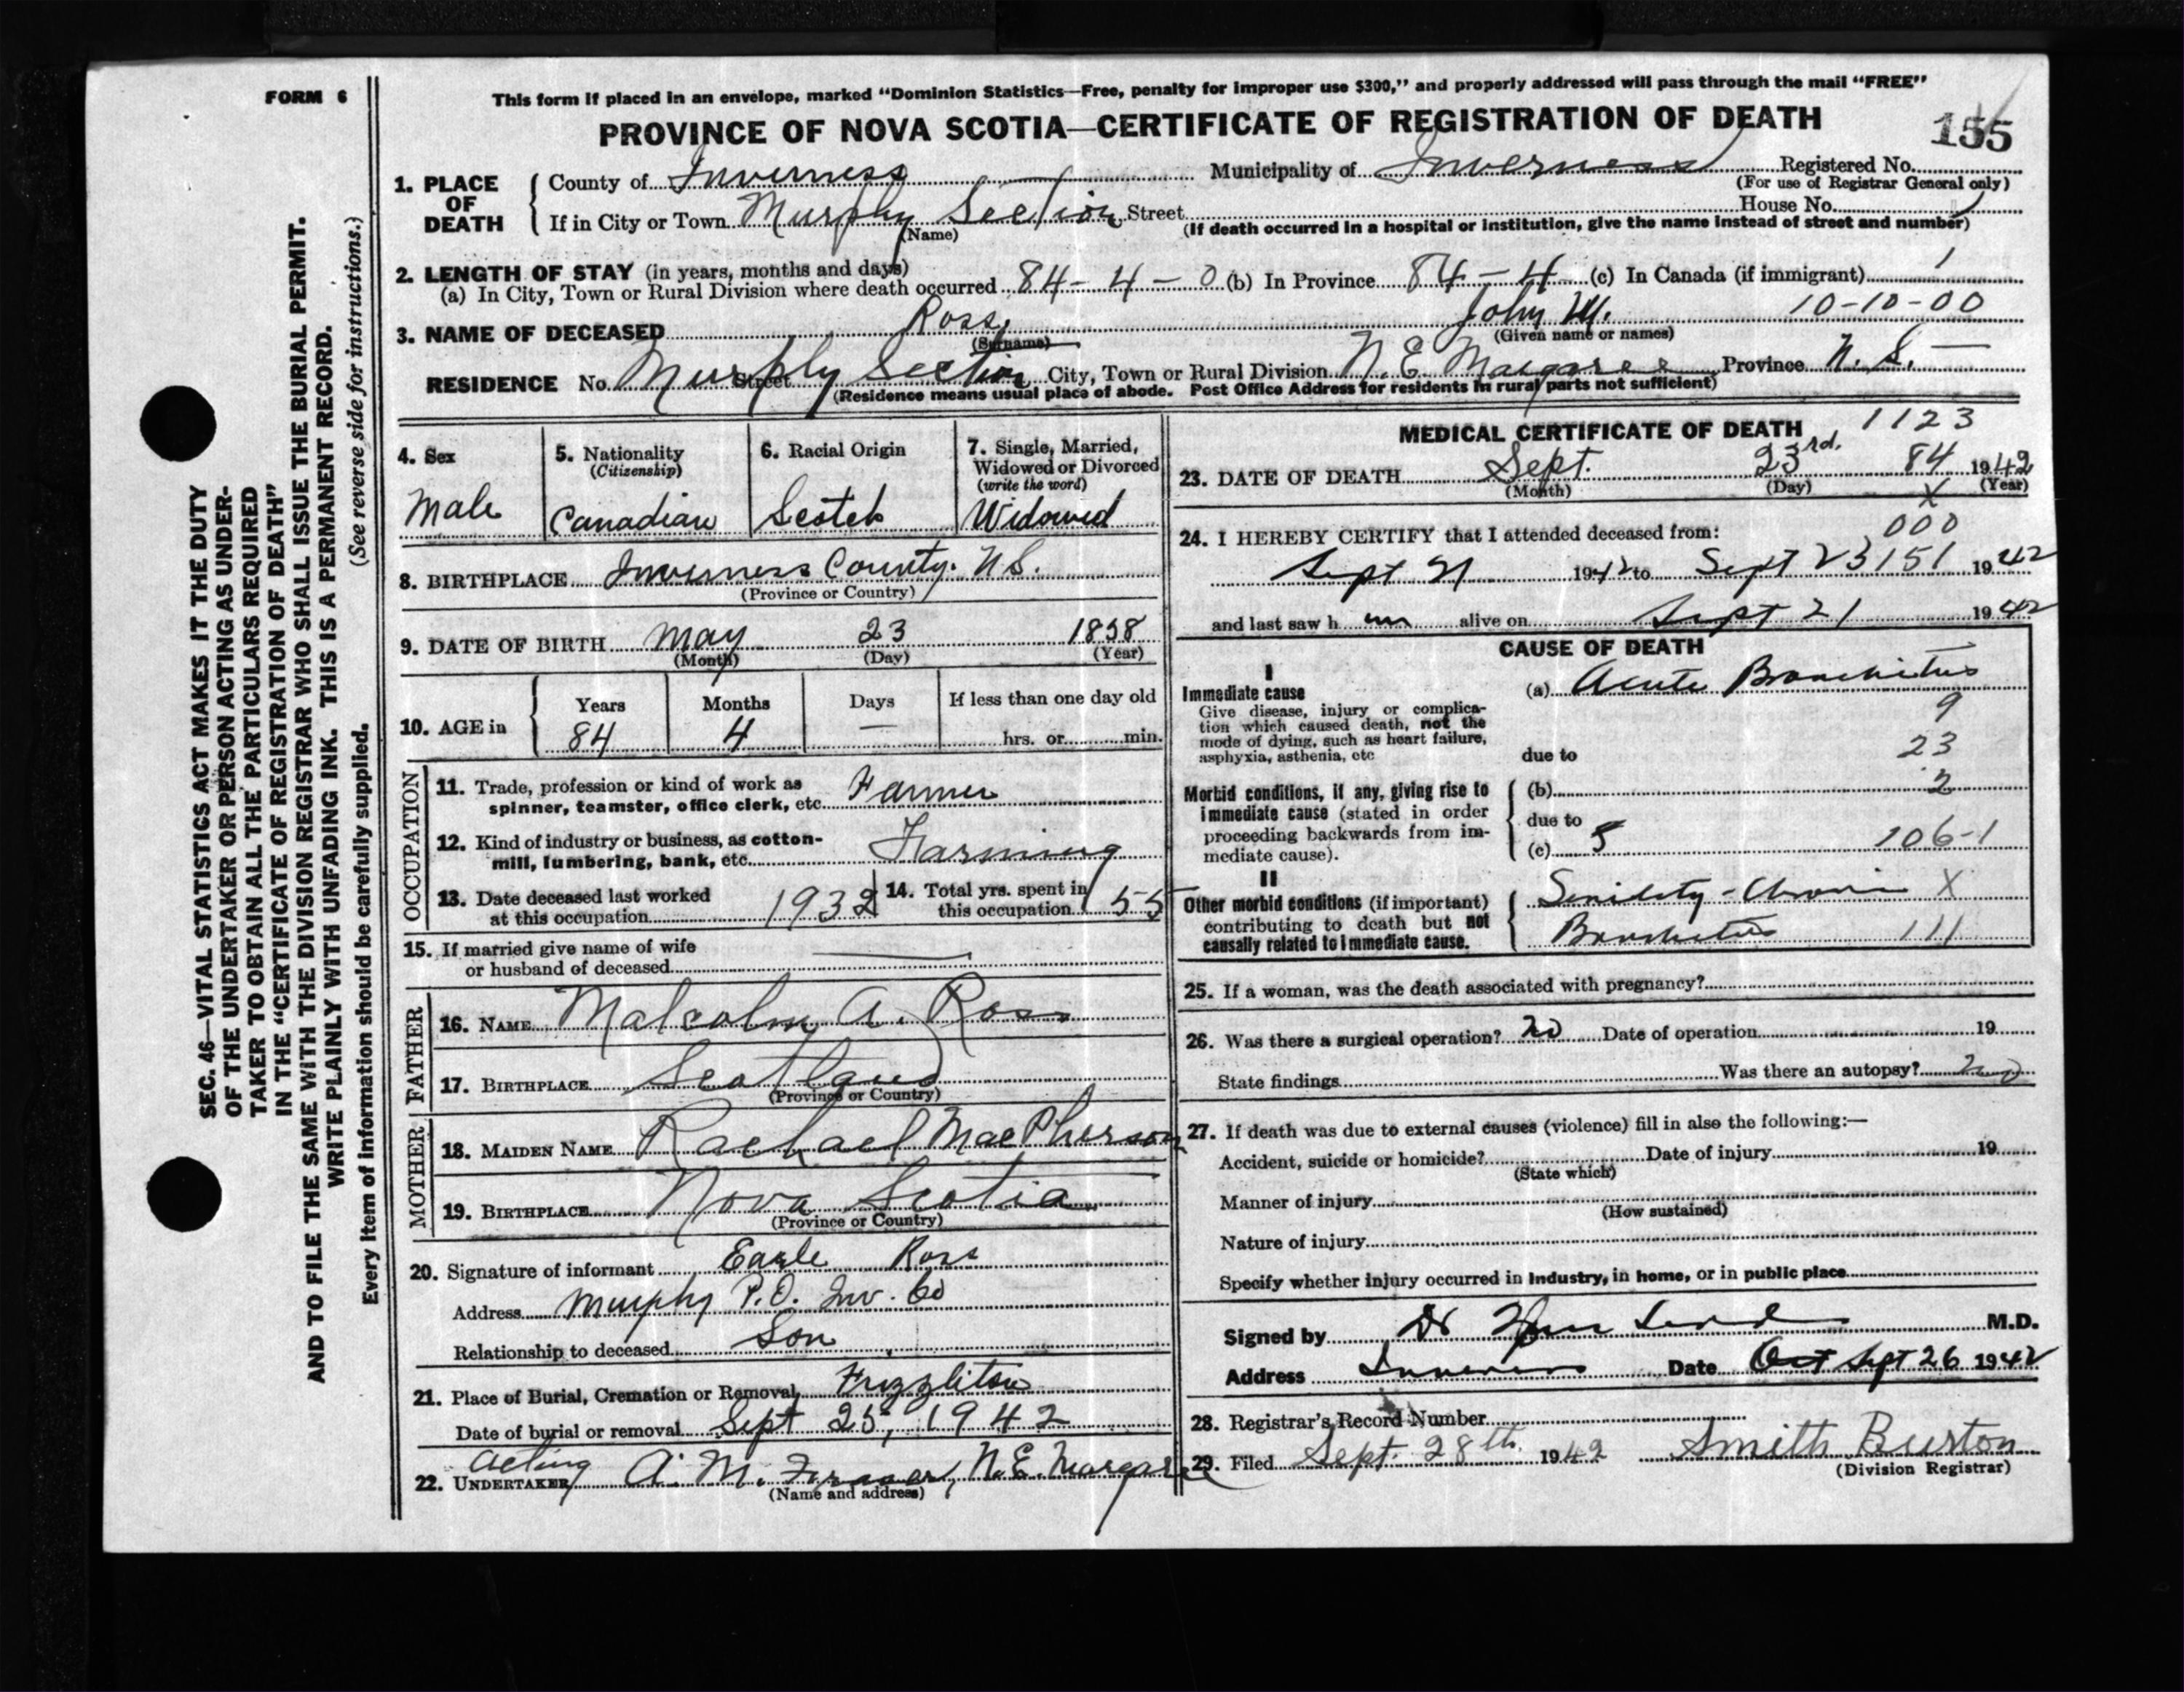 FORM 6
This form if placed in an envelope, marked "Dominion Statistics—Free, penalty for improper use $300," and properly addressed will pass through the mail "FREE"
PROVINCE OF NOVA SCOTIA—CERTIFICATE OF REGISTRATION OF DEATH
155
1. PLACE OF DEATH
County of Inverness Municipality of Inverness Registered No.
(For use of Registrar General only)
If in City or Town Murphy Section Street House No.
(Name) (If death occurred in a hospital or institution, give the name instead of street and number)
2. LENGTH OF STAY (in years, months and days)
(a) In City, Town or Rural Division where death occurred 84-4-0 (b) In Province 84-4 (c) In Canada (if immigrant) 1
3. NAME OF DECEASED Ross, John M. 10-10-00
(Surname) (Given name or names)
RESIDENCE No. Murphy Section Street City, Town or Rural Division N. E. Margaree Province N. S.
(Residence means usual place of abode. Post Office Address for residents in rural parts not sufficient)
4. Sex
Male
5. Nationality
(Citizenship)
Canadian
6. Racial Origin
Scotch
7. Single, Married,
Widowed or Divorced
(write the word)
Widowed
8. BIRTHPLACE Inverness County. N.S.
(Province or Country)
9. DATE OF BIRTH May 23 1858
(Month) (Day) (Year)
10. AGE in
Years Months Days If less than one day old
84 4 — hrs. or min.
OCCUPATION
11. Trade, profession or kind of work as
spinner, teamster, office clerk, etc. Farmer
12. Kind of industry or business, as cotton-
mill, lumbering, bank, etc. Farming
13. Date deceased last worked
at this occupation 1932
14. Total yrs. spent in
this occupation 55
15. If married give name of wife
or husband of deceased
FATHER
16. NAME Malcolm A. Ross
17. BIRTHPLACE Scotland
(Province or Country)
MOTHER
18. MAIDEN NAME Rachael MacPherson
19. BIRTHPLACE Nova Scotia
(Province or Country)
20. Signature of informant Earle Ross
Address Murphy P.O. Inv. Co
Relationship to deceased Son
21. Place of Burial, Cremation or Removal Frizzleton
Date of burial or removal Sept 25, 1942
Acting
22. UNDERTAKER A. M. Fraser, N.E. Margaree
(Name and address)
MEDICAL CERTIFICATE OF DEATH 1123
23. DATE OF DEATH Sept. 23rd. 84 1942
(Month) (Day) X (Year)
24. I HEREBY CERTIFY that I attended deceased from: 000
Sept 21 1942 to Sept 23 151 1942
and last saw h im alive on Sept 21 1942
CAUSE OF DEATH
I
Immediate cause
Give disease, injury or complica-
tion which caused death, not the
mode of dying, such as heart failure,
asphyxia, asthenia, etc
(a) Acute Bronchitus
9
23
due to
Morbid conditions, if any, giving rise to
immediate cause (stated in order
proceeding backwards from im-
mediate cause).
(b) 2
due to
(c) 5 106-1
II
Other morbid conditions (if important)
contributing to death but not
causally related to immediate cause.
Senility - Chronic X
Bronchitus 111
25. If a woman, was the death associated with pregnancy?
26. Was there a surgical operation? no Date of operation 19
State findings Was there an autopsy? no
27. If death was due to external causes (violence) fill in also the following:—
Accident, suicide or homicide? Date of injury 19
(State which)
Manner of injury
(How sustained)
Nature of injury
Specify whether injury occurred in industry, in home, or in public place
Signed by Dr M.D.
Address Inverness Date Oct Sept 26 1942
28. Registrar's Record Number
29. Filed Sept. 28th. 1942 Smith Burton
(Division Registrar)
SEC. 46—VITAL STATISTICS ACT MAKES IT THE DUTY
OF THE UNDERTAKER OR PERSON ACTING AS UNDER-
TAKER TO OBTAIN ALL THE PARTICULARS REQUIRED
IN THE "CERTIFICATE OF REGISTRATION OF DEATH"
AND TO FILE THE SAME WITH THE DIVISION REGISTRAR WHO SHALL ISSUE THE BURIAL PERMIT.
WRITE PLAINLY WITH UNFADING INK. THIS IS A PERMANENT RECORD.
Every item of information should be carefully supplied. (See reverse side for instructions.)